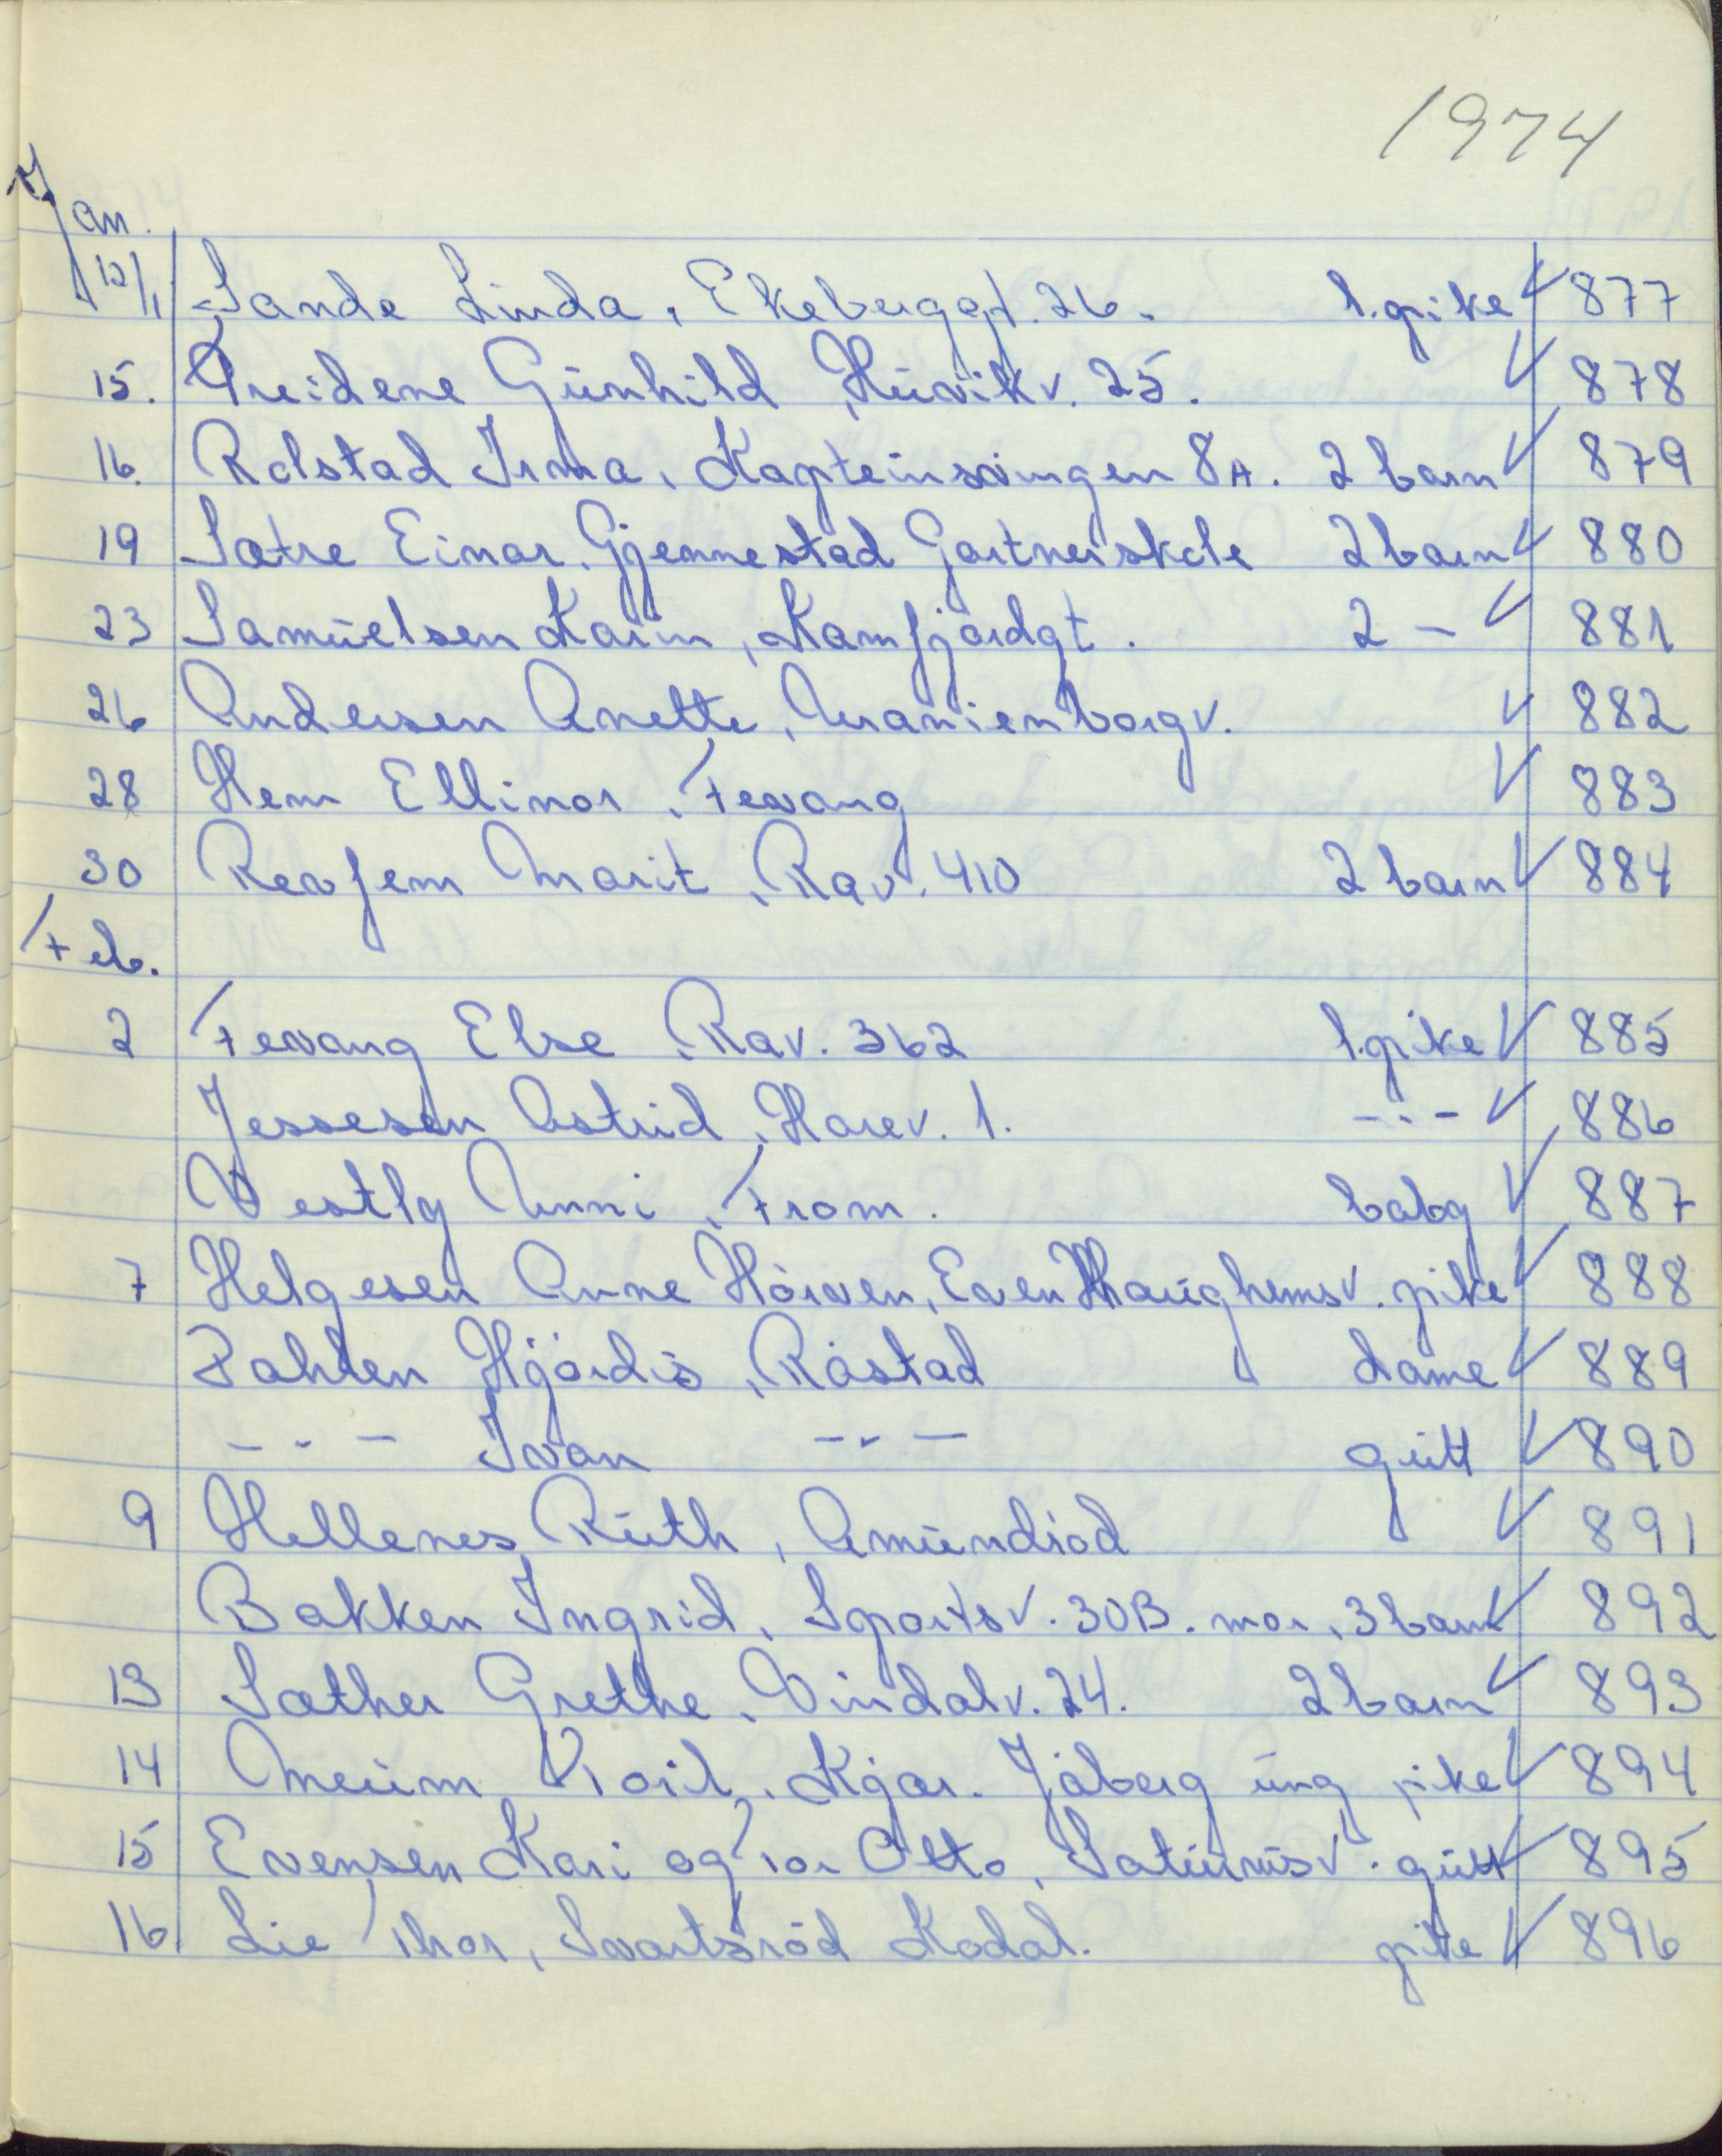 1974
Jan.
12/1 Sande Linda, Ekeberggt. 26. 1.pike ✓ 877
15. Gunhild, Huvikv. 25. ✓ 878
16. Rolstad Irma, Kapteinsvingen 8A. 2 barn ✓ 879
19 Sætre Einar, Gjennestad Gartnerskole 2 barn ✓ 880
23 Samuelsen Karin, Kamfjordgt. 2 - ✓ 881
26 Andersen Anette, Uranienborgv. ✓ 882
28 Hem Ellinor, Fevang ✓ 883
30 Revfem Marit, Rav. 410 2 barn ✓ 884
Feb.
2 Fevang Else, Rav. 362 1.pike ✓ 885
Jessesen Astrid, Harev. 1. -·- ✓ 886
Vestly Anni, Fram. baby ✓ 887
7 Helgesen Anne Hårven, Even Haughemsv. pike ✓ 888
Dahlen Hjørdis, Råstad dame ✓ 889
-·- Ivan -·- gutt ✓ 890
9 Hellenes Ruth, Amundrød ✓ 891
Bakken Ingrid, Sportsv. 30B. mor, 3 barn ✓ 892
13 Sæther Grethe, Vindalv. 24. 2 barn ✓ 893
14 Meum Kjær. Jåberg ung pike ✓ 894
15 Evensen Kari og Tor Otto, Saturnusv. gutt ✓ 895
16 Lie Thor, Svartsrød Kodal. pike ✓ 896